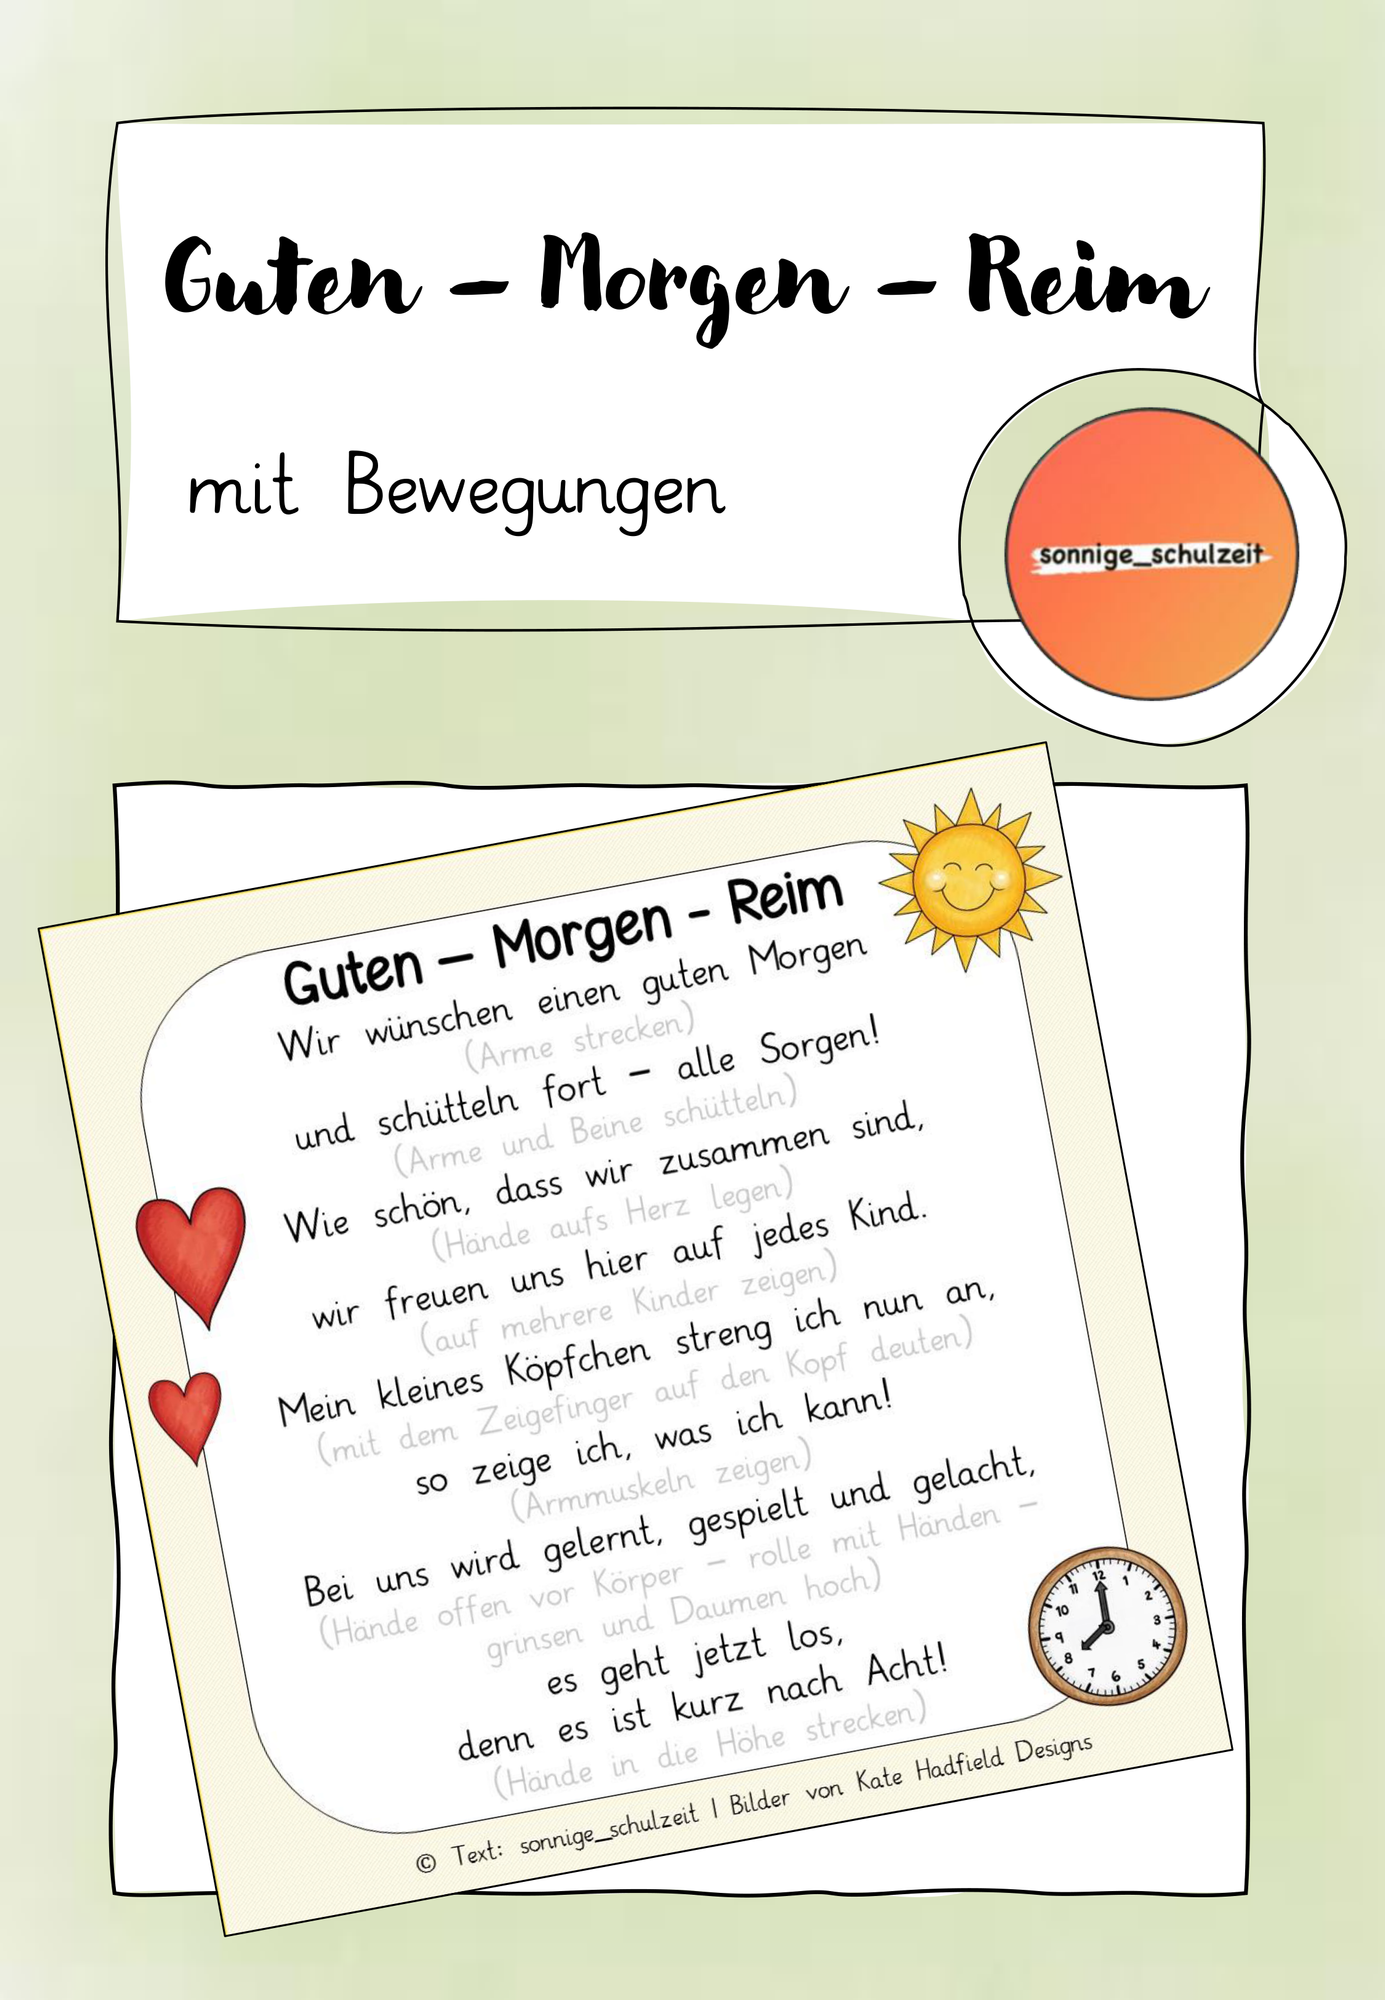 Guten – Morgen – Reim
mit Bewegungen
sonnige_schulzeit
Guten – Morgen - Reim
Wir wünschen einen guten Morgen
(Arme strecken)
und schütteln fort – alle Sorgen!
(Arme und Beine schütteln)
Wie schön, dass wir zusammen sind,
(Hände aufs Herz legen)
wir freuen uns hier auf jedes Kind.
(auf mehrere Kinder zeigen)
Mein kleines Köpfchen streng ich nun an,
(mit dem Zeigefinger auf den Kopf deuten)
so zeige ich, was ich kann!
(Armmuskeln zeigen)
Bei uns wird gelernt, gespielt und gelacht,
(Hände offen vor Körper – rolle mit Händen –
grinsen und Daumen hoch)
es geht jetzt los,
denn es ist kurz nach Acht!
(Hände in die Höhe strecken)
12
1
2
3
4
5
6
7
8
9
10
11
© Text: sonnige_schulzeit | Bilder von Kate Hadfield Designs